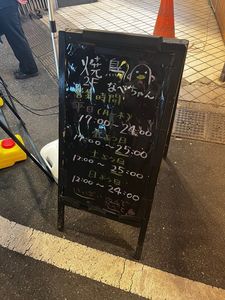 焼鳥
なべちゃん
営業時間
平日(月〜木)
17:00〜24:00
17:00〜25:00
土よう日
12:00〜25:00
日よう日
12:00〜24:00